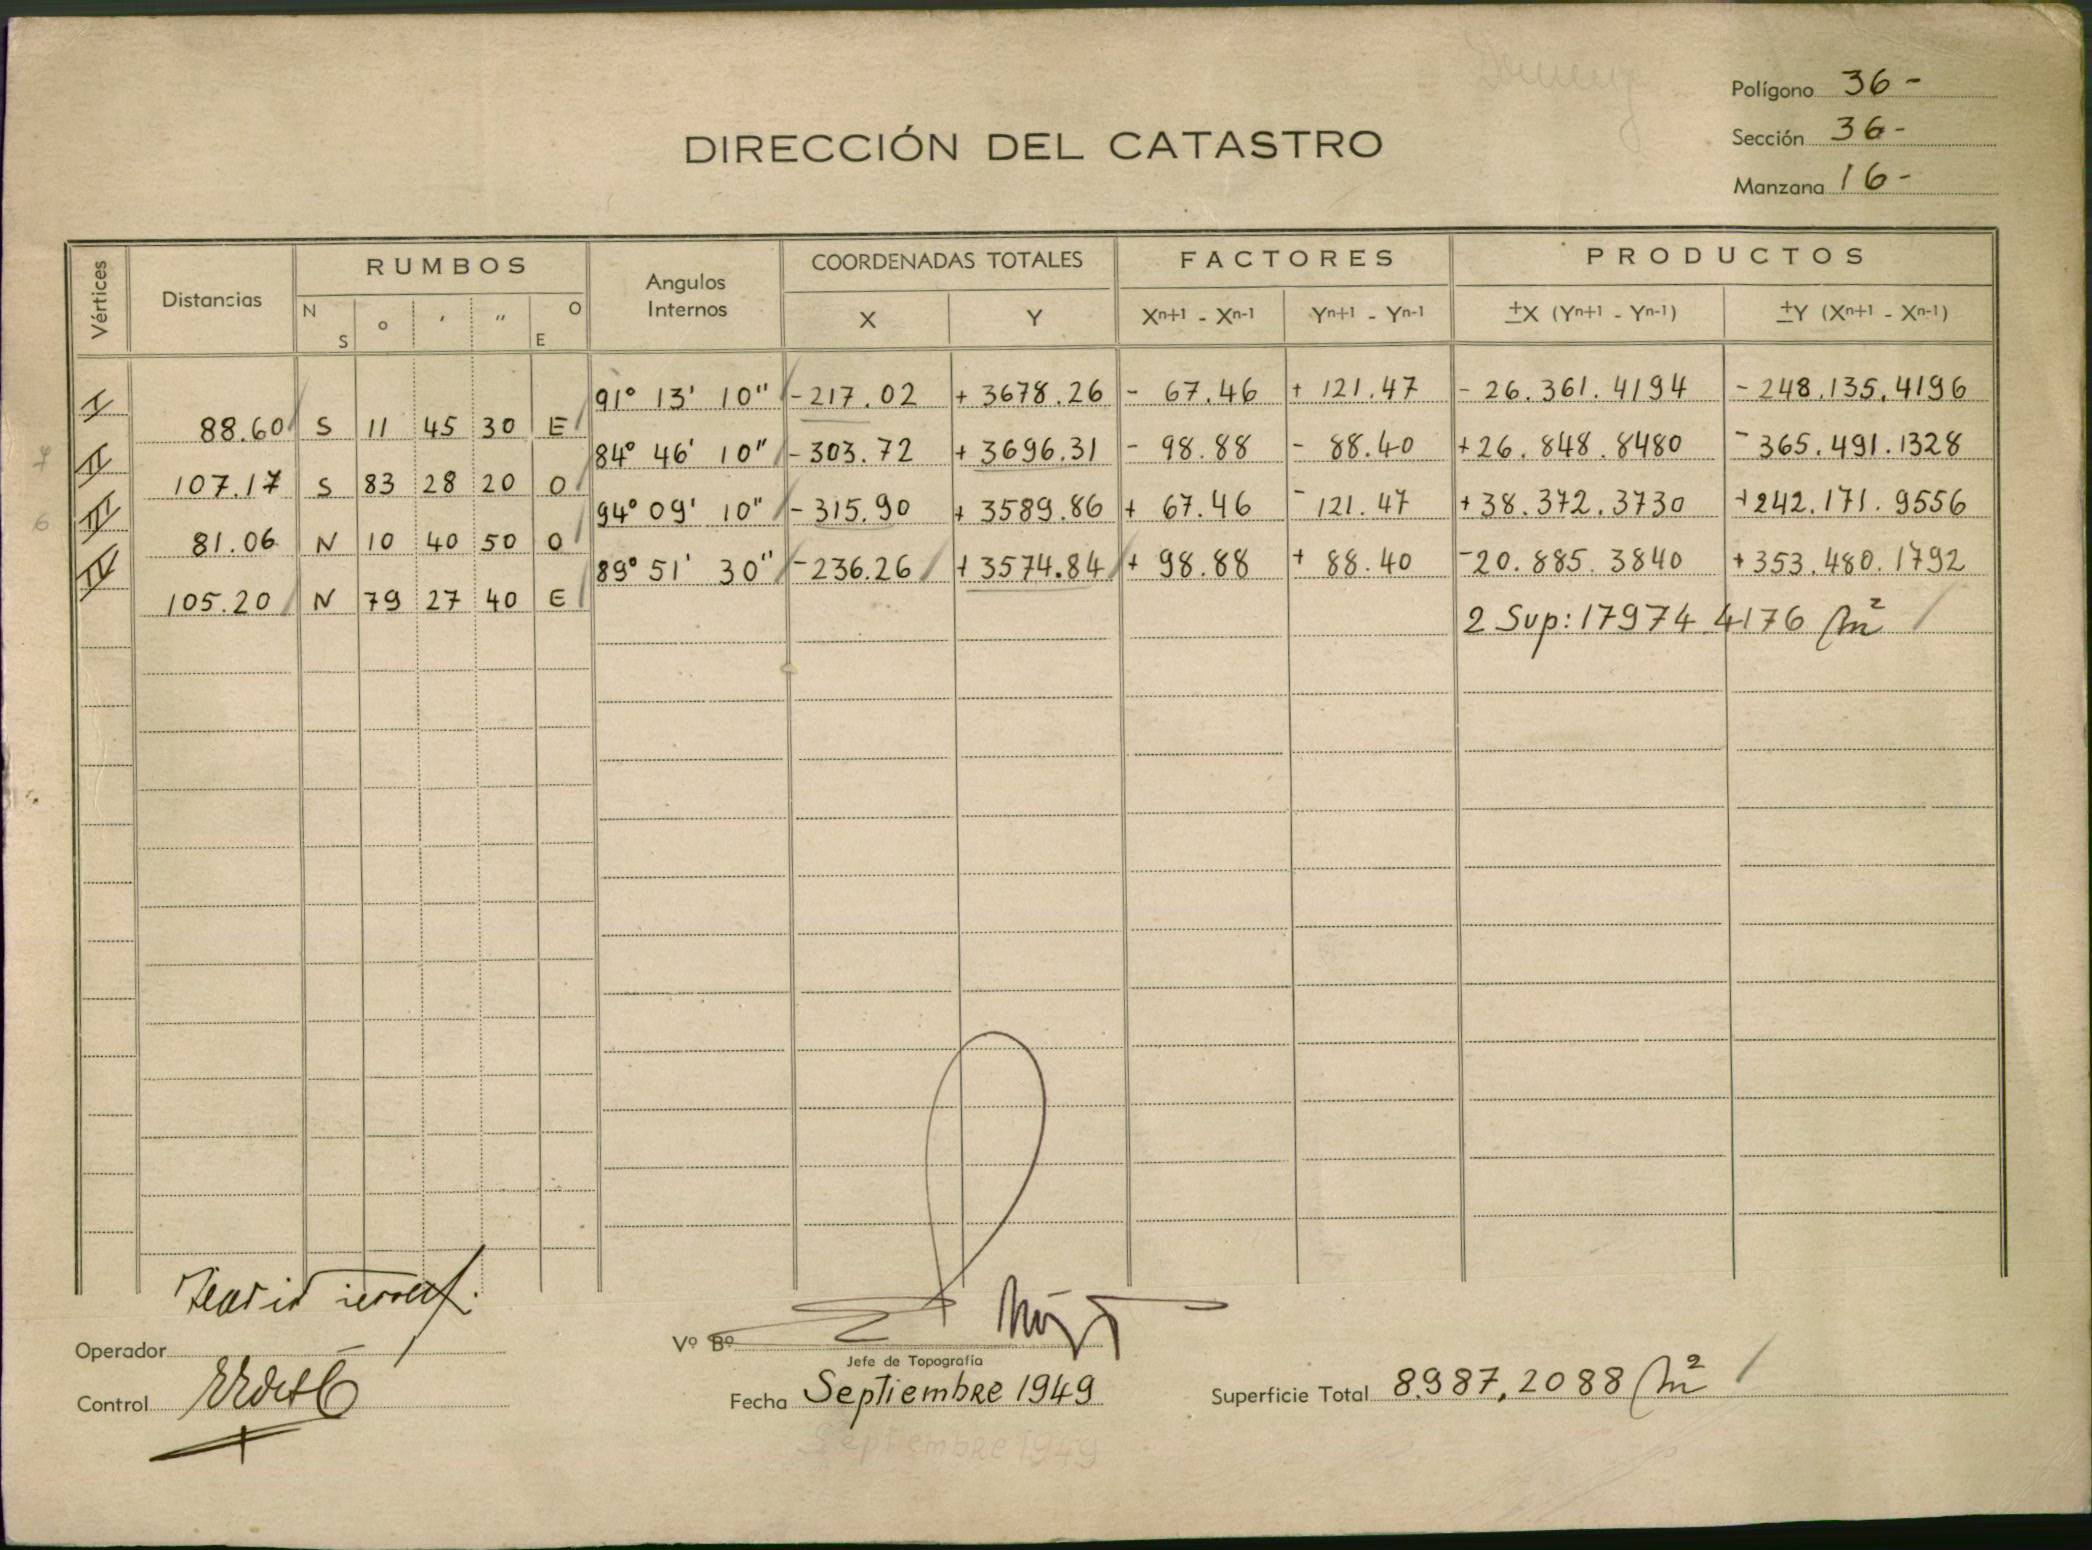 Polígono 36 -
Sección 36 -
Manzana 16 -
DIRECCIÓN DEL CATASTRO
Vértices Distancias RUMBOS Angulos Internos COORDENADAS TOTALES FACTORES PRODUCTOS
N S ° ' " O E X Y Xn+1 - Xn-1 Yn+1 - Yn-1 ±X (Yn+1 - Yn-1) ±Y (Xn+1 - Xn-1)
I 91° 13' 10" - 217.02 + 3678.26 - 67.46 + 121.47 - 26.361.4194 - 248.135.4196
88.60 S 11 45 30 E
II 84° 46' 10" - 303.72 + 3696.31 - 98.88 - 88.40 + 26.848.8480 - 365.491.1328
107.17 S 83 28 20 O
III 94° 09' 10" - 315.90 + 3589.86 + 67.46 - 121.47 + 38.372.3730 + 242.171.9556
81.06 N 10 40 50 O
IV 89° 51' 30" - 236.26 + 3574.84 + 98.88 + 88.40 - 20.885.3840 + 353.480.1792
105.20 N 79 27 40 E
2 Sup: 17974.4176 m²
7
6
Operador
Vº Bº
Jefe de Topografía
Control
Fecha Septiembre 1949
Superficie Total 8.987,2088 m²
Septiembre 1949